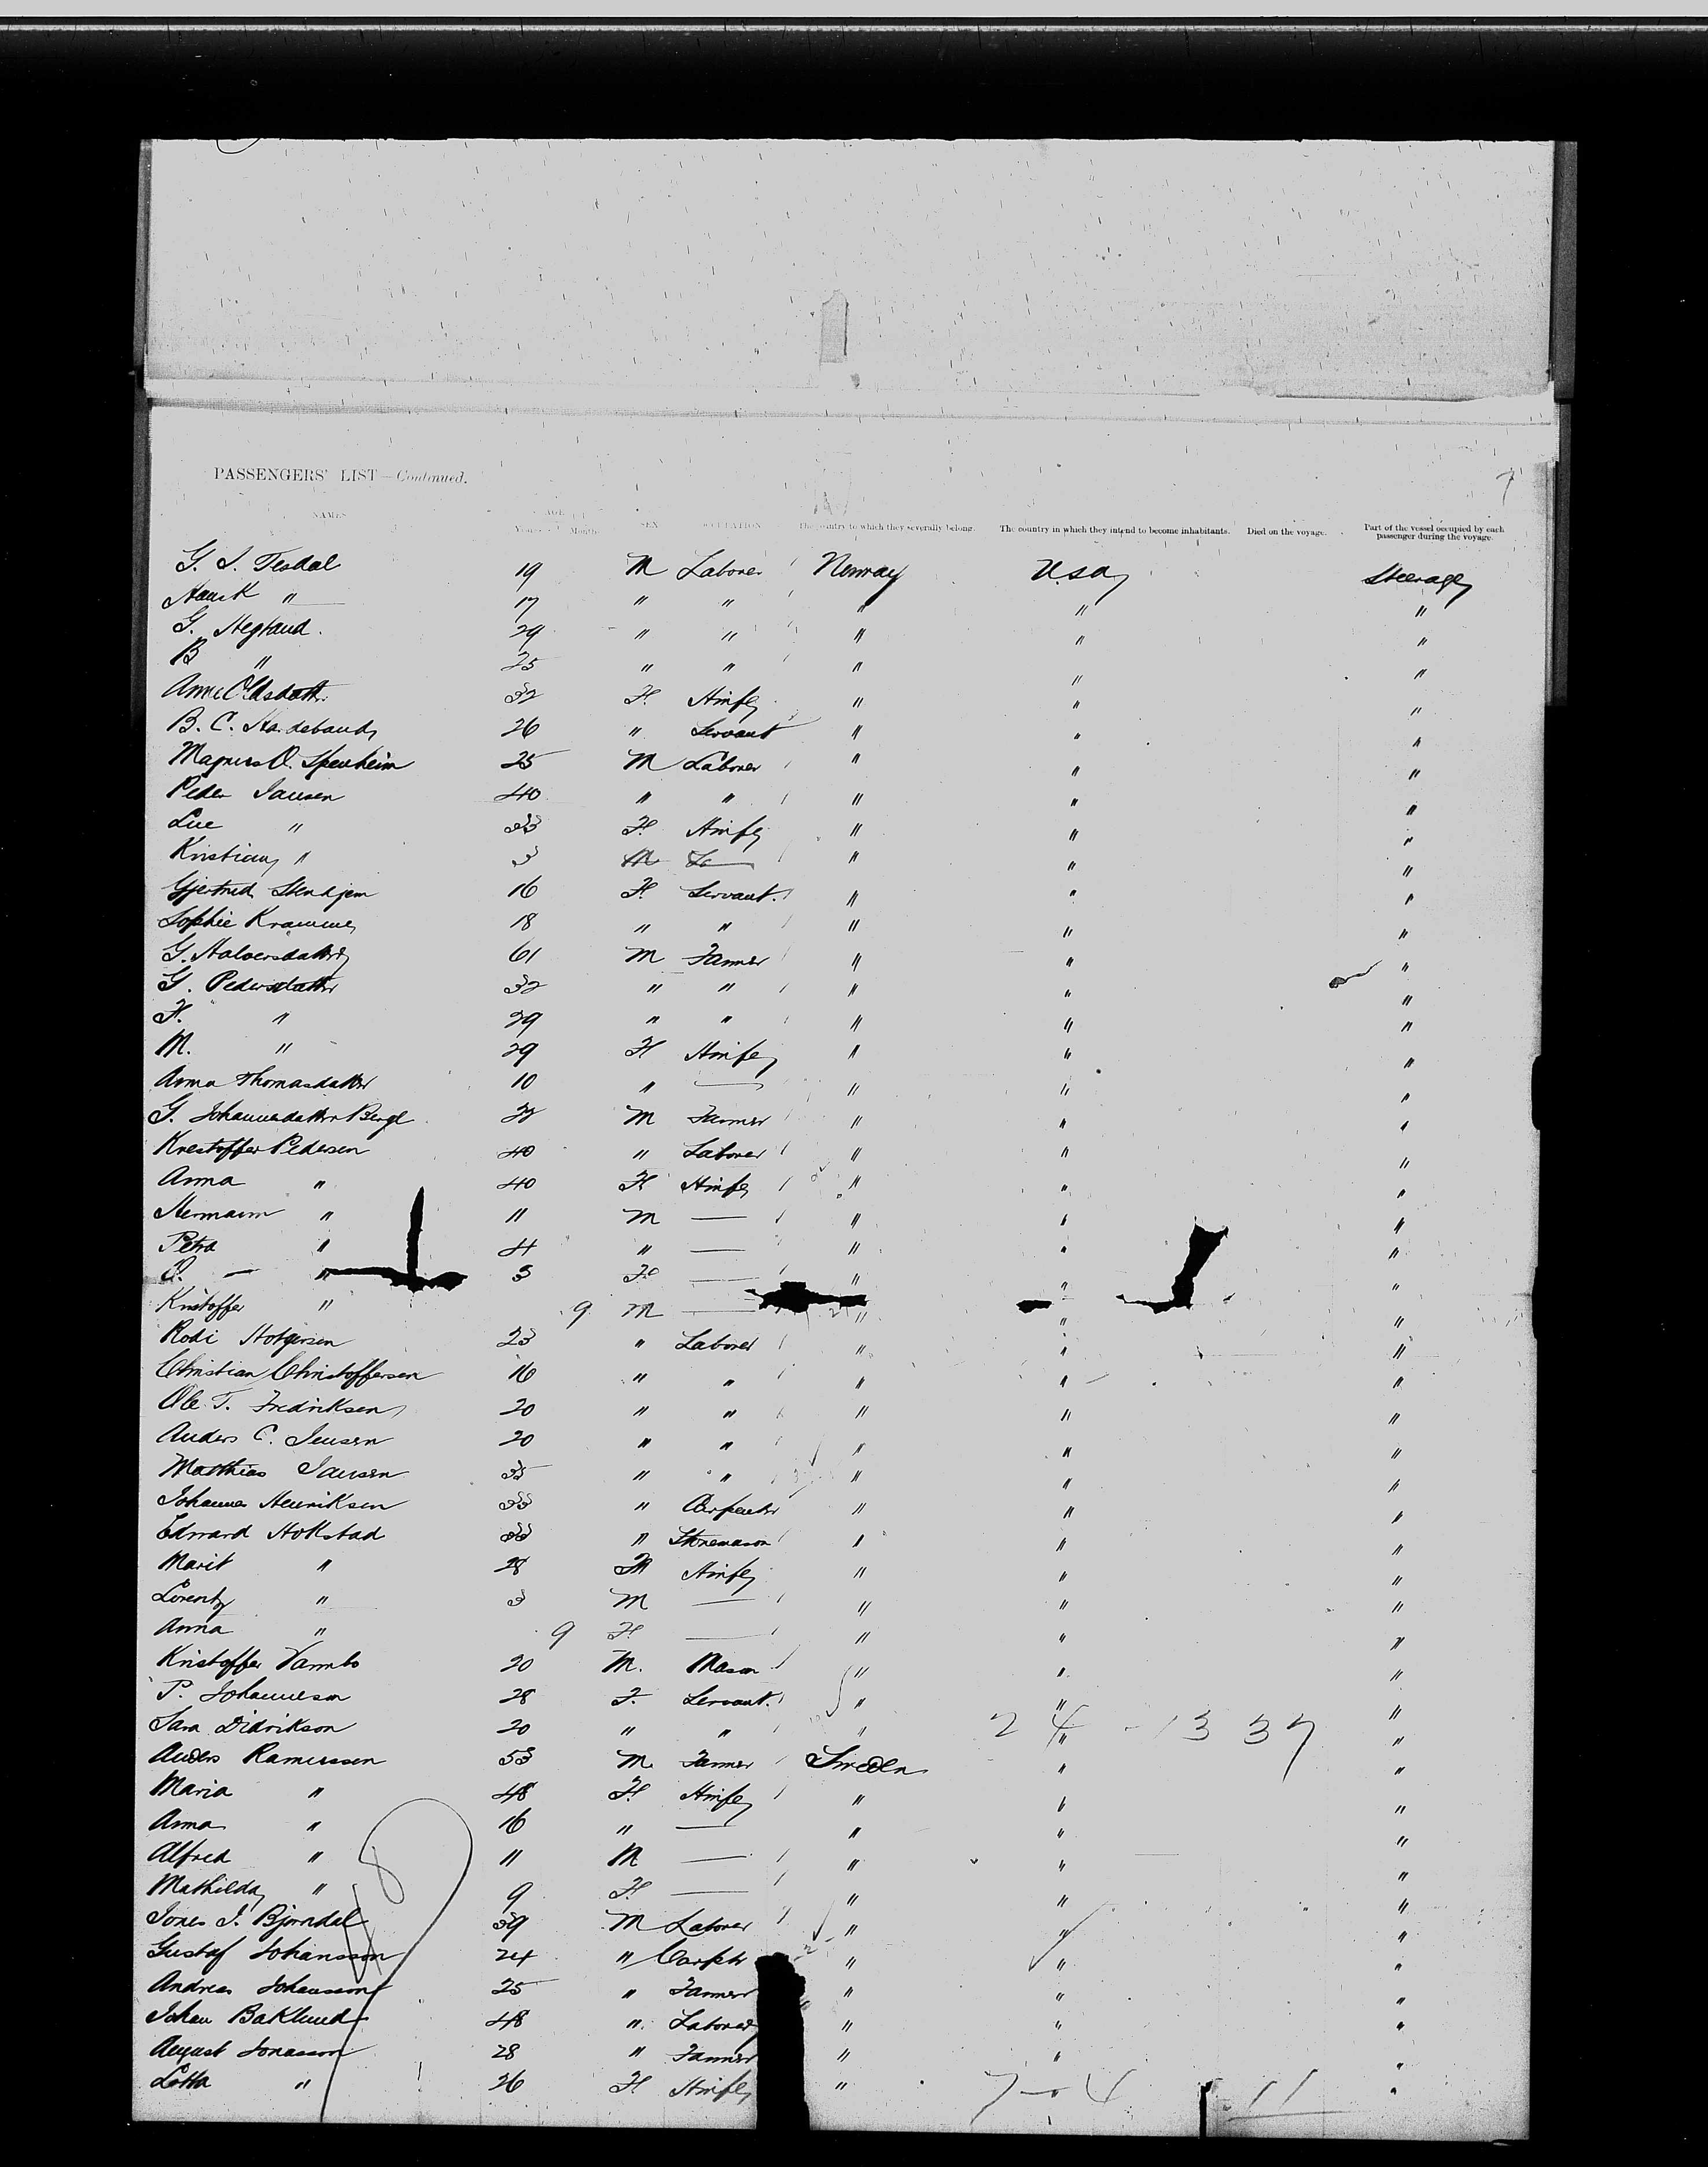 PASSENGERS' LIST—Continued. 7
NAMES AGE Years Months SEX OCCUPATION The country to which they severally belong. The country in which they intend to become inhabitants. Died on the voyage. Part of the vessel occupied by each passenger during the voyage.
G. I. Tesdal 19 M Laborer Norway U.S.A. Steerage
" 17 " " " " "
G. 29 " " " " "
B " 25 " " " " "
32 F. " " "
B. C. 26 " Servant " " "
Magnus O. 25 M Laborer " " "
Peder Jansen 40 " " " " "
" 33 F. " " "
" 3 M " " "
Gjertrud 16 F. Servant. " " "
Sophie 18 " " " " "
G. Halvorsdatter 61 M Farmer " " "
G. Pedersdatter 32 " " " " "
" 29 " " " " "
M. " 29 F " " "
Anna Thomasdatter 10 " — " " "
G. Johannesdatter M Farmer " " "
Krestoffer Pedersen 40 " Laborer " " "
Anna " 40 F " " "
Hermann " 11 M — " " "
Petra " 4 " — " " "
— " 3 F — " " "
Kristoffer " 9 M — " " "
Rodi Holgersen 23 " Laborer " " "
Christian Christoffersen 16 " " " " "
Ole T. Fredriksen 20 " " " " "
Anders C. Jensen 20 " " " " "
Matthias Jansen 35 " " " " "
Johannes Henriksen 33 " Carpenter " " "
Edward Hokstad 33 " Stonemason " " "
Marit " 28 " " "
Lorentz " 3 M — " " "
Anna " 9 F — " " "
Kristoffer 20 M. Mason " " "
P. Johannesen 28 F. Servant. " " "
Sara Didrikson 20 " " " " "
24 - 13 37
Anders Ramussen 53 M. Farmer Sweden " "
Maria " 48 F. " " "
Anna " 16 " — " " "
Alfred " 11 M — " " "
Mathilda " 9 F. — " " "
Jones J. Bjorndal 39 M Laborer " " "
Gustaf Johansson 24 " Carptr " " "
Andreas Johansson 25 " Farmer " " "
Johan Baklund 48 " Laborer " " "
August Jonasson 28 " Farmer " " "
Lotta " 26 F " " "
11